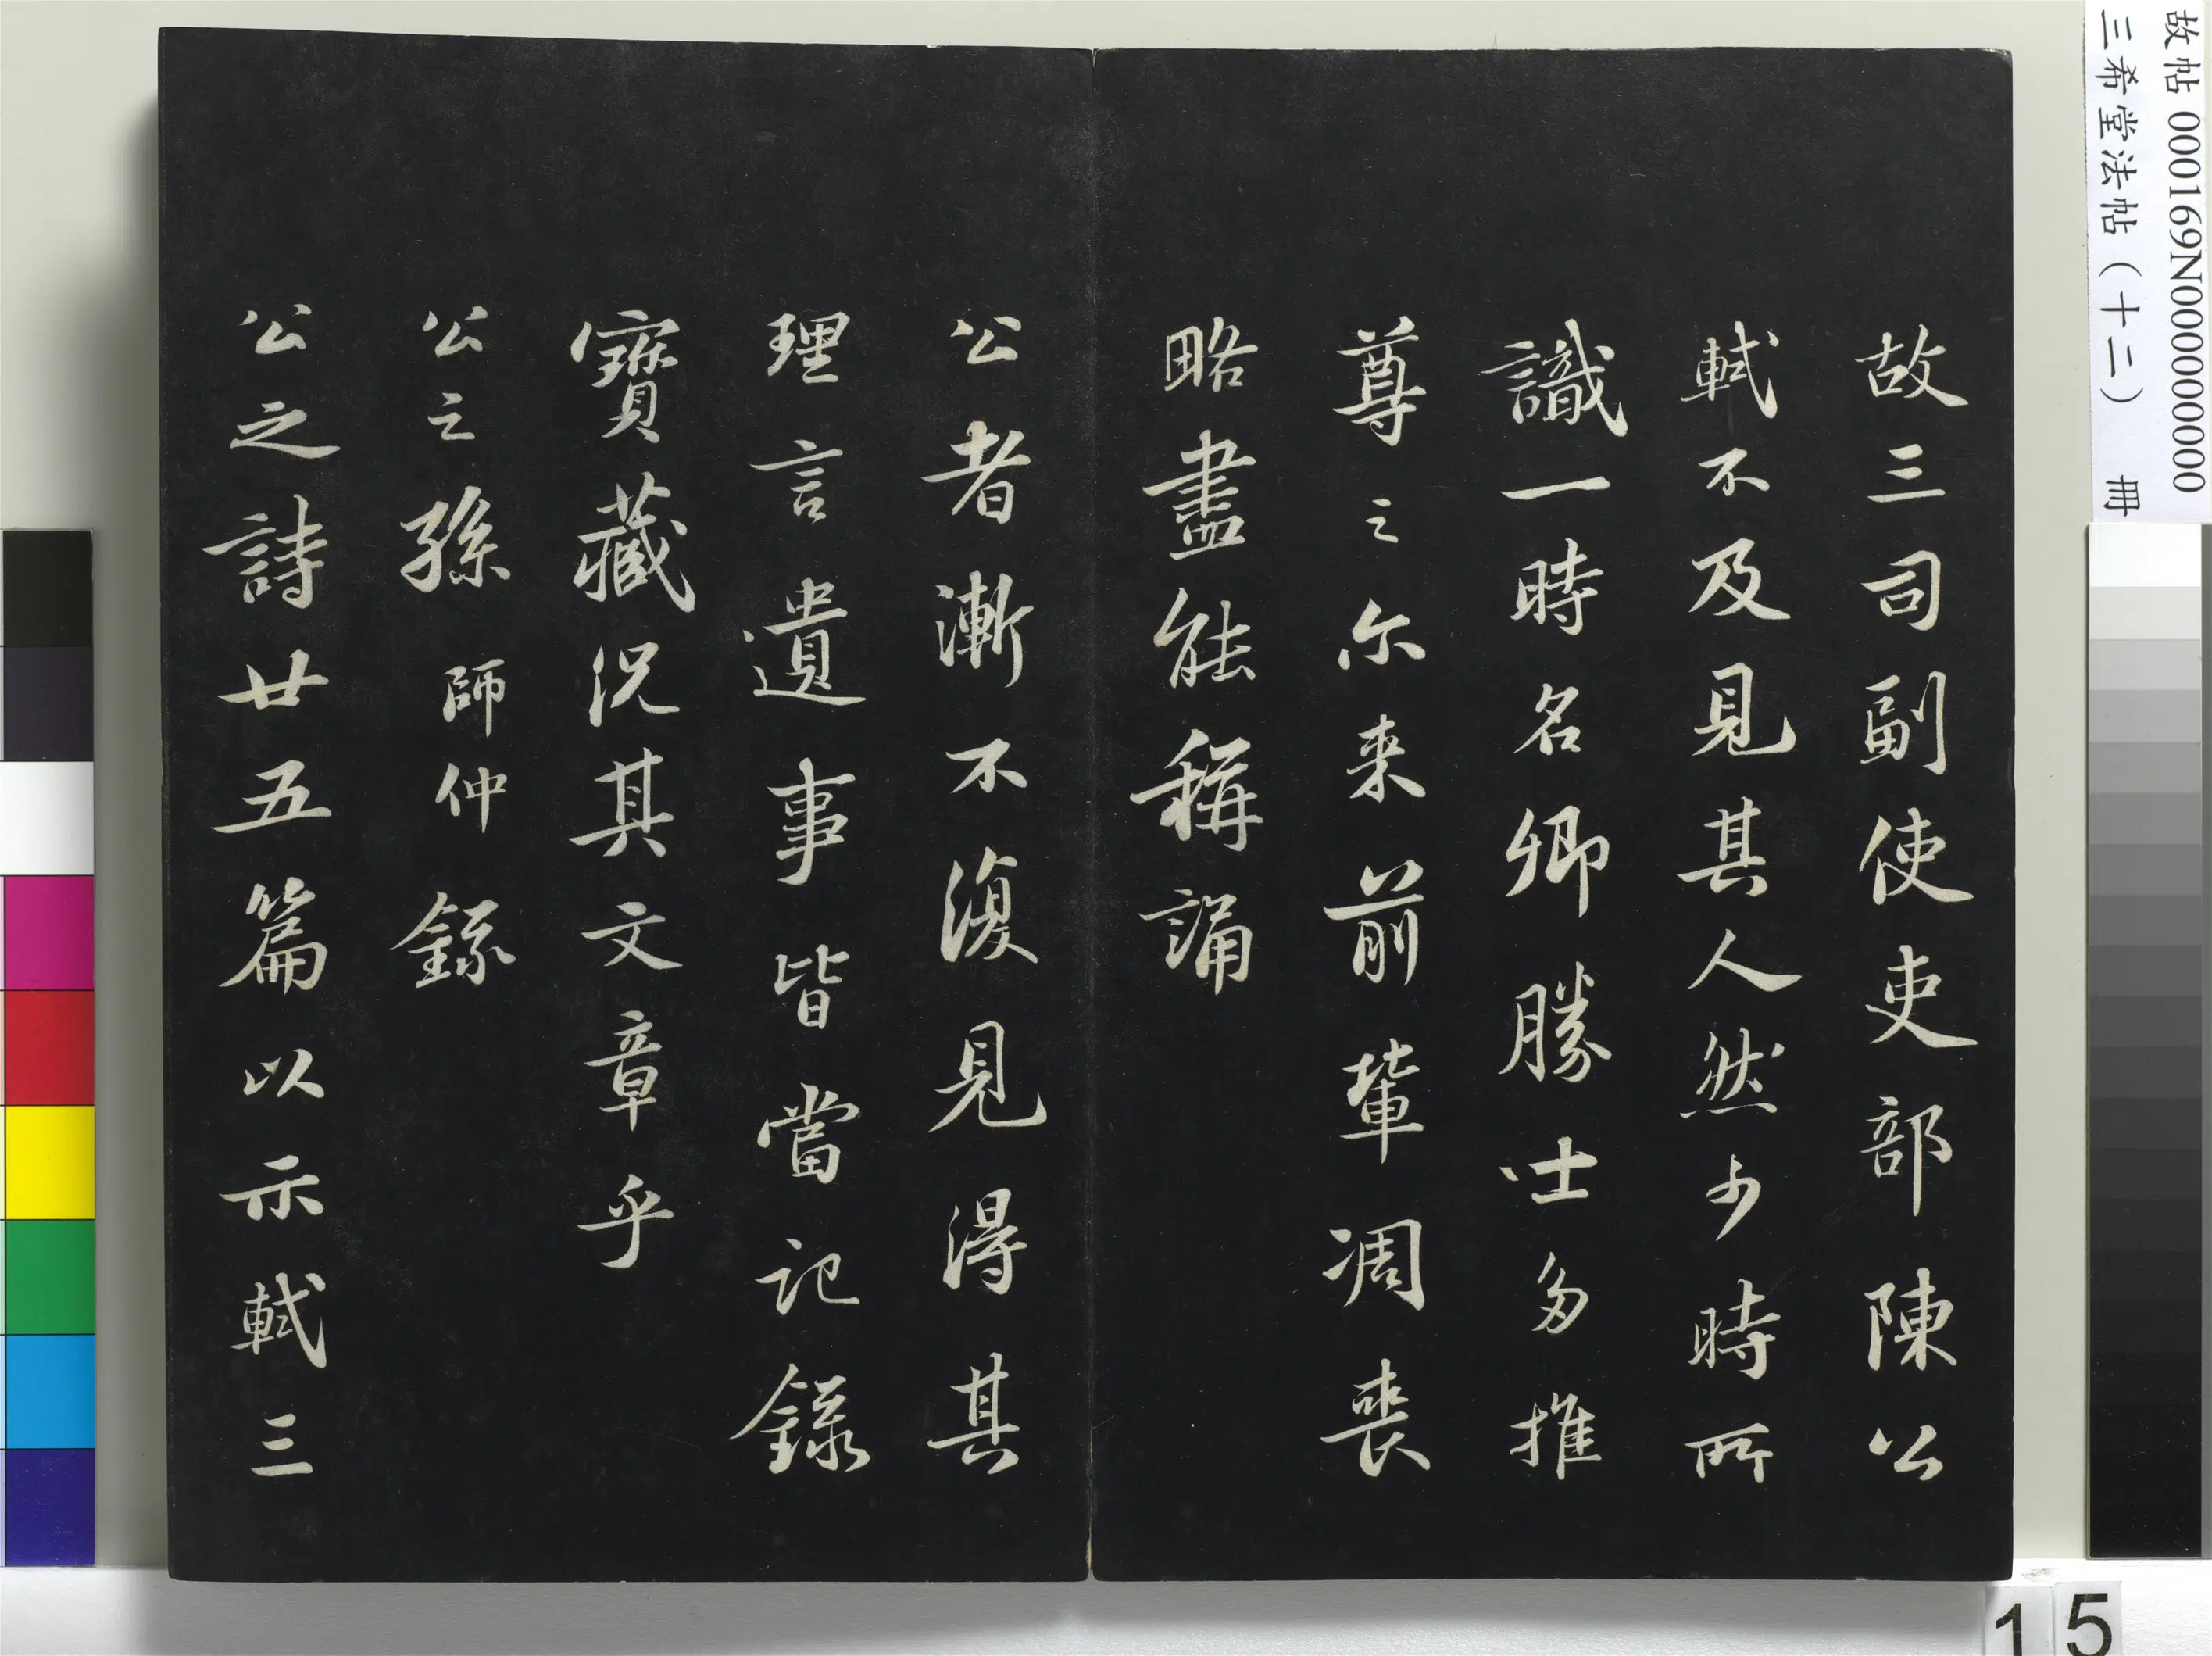 故帖 000169N000000000
三希堂法帖（十二） 冊
故三司副使吏部陳公
軾不及見其人然少時所
識一時名卿勝士多推
尊之尔来前輩凋喪
略盡能稱誦
公者漸不復見得其
理言遺事皆當記錄
寶藏況其文章乎
公之孫師仲錄
公之詩廿五篇以示軾三
15